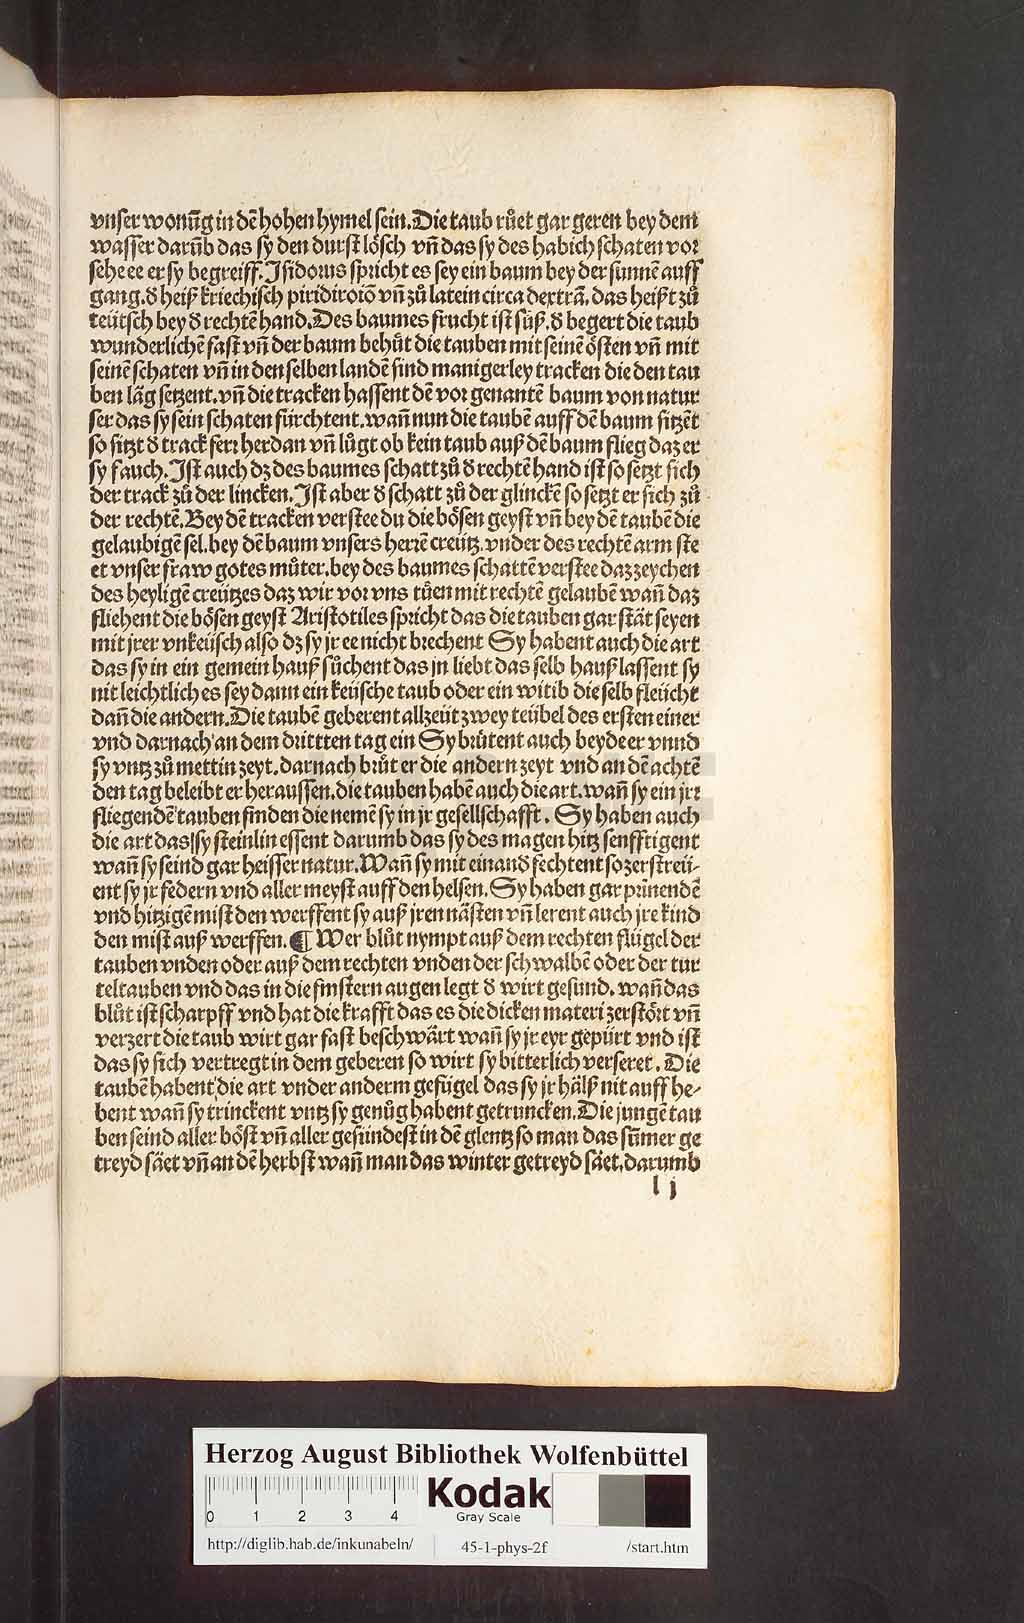 vnser wonūg in dē hohen hymel sein. Die taub růet gar geren bey dem
wasser darūb das sy den durst lösch vñ das sy des habich schaten vor
sehe ee er sy begreiff. Jsidorus spricht es sey ein baum bey der sunnē auff
gang. d heißt kriechisch piridiroiō vñ zů latein circa dextrā. das heißt zů
teütsch bey d rechtē hand. Des baumes frucht ist süß. d begert die taub
wunderlichē fast vñ der baum behůt die tauben mit seinē östen vñ mit
seinē schaten vñ in den selben landē sind manigerley tracken die den tau
ben läg setzent. vñ die tracken hassent dē vor genantē baum von natur
ser das sy sein schaten fürchtent. wañ nun die taubē auff dē baum sitzēt
so sitzt d track ferr herdan vñ lůgt ob kein taub auß dē baum flieg daz er
sy fauch. Jst auch dz des baumes schatt zů d rechtē hand ist so setzt sich
der track zů der lincken. Jst aber d schatt zů der glinckē so setzt er sich zů
der rechtē. Bey dē tracken verstee du die bösen geyst vñ bey dē taubē die
gelaubigē sel. bey dē baum vnsers herrē creütz. vnder des rechtē arm ste
et vnser fraw gotes můter. bey des baumes schattē verstee daz zeychen
des heyligē creützes daz wir vor vns tůen mit rechtē gelaubē wañ daz
fliehent die bösen geyst Aristotiles spricht das die tauben gar stät seyen
mit jrer vnkeüsch also dz sy jr ee nicht brechent Sy habent auch die art
das sy in ein gemein hauß sůchent das jn liebt das selb hauß lassent sy
nit leichtlich es sey dann ein keüsche taub oder ein witib die selb fleücht
dañ die andern. Die taubē geberent allzeüt zwey teübel des ersten einer
vnd darnach an dem drittten tag ein Sy brůtent auch beyde er vnnd
sy vntz zů mettin zeyt. darnach brůt er die andern zeyt vnd an dē achtē
den tag beleibt er heraussen. die tauben habē auch die art. wañ sy ein jrr
fliegendē tauben finden die nemē sy in jr gesellschafft. Sy haben auch
die art das sy steinlin essent darumb das sy des magen hitz senfftigent
wañ sy seind gar heisser natur. Wañ sy mit einand fechtent so zerstreü-
ent sy jr federn vnd aller meyst auff den helsen. Sy haben gar prinnendē
vnd hitzigē mist den werffent sy auß jren nästen vñ lerent auch jre kind
den mist auß werffen. ¶ Wer blůt nympt auß dem rechten flügel der
tauben vnden oder auß dem rechten vnden der schwalbē oder der tur
teltauben vnd das in die finstern augen legt d wirt gesund. wañ das
blůt ist scharpff vnd hat die krafft das es die dicken materi zerstört vñ
verzert die taub wirt gar fast beschwärt wañ sy jr eyr gepürt vnd ist
das sy sich vertregt in dem geberen so wirt sy bitterlich verseret. Die
taubē habent die art vnder anderm gefügel das sy jr hälß nit auff he-
bent wañ sy trinckent vntz sy genůg habent getruncken. Die jungē tau
ben seind aller böst vñ aller gesündest in dē glentz so man das sūmer ge
treyd säet vñ an dē herbst wañ man das winter getreyd säet. darumb
l j
Herzog August Bibliothek Wolfenbüttel
0 1 2 3 4
Kodak
Gray Scale
http://diglib.hab.de/inkunabeln/ 45-1-phys-2f /start.htm